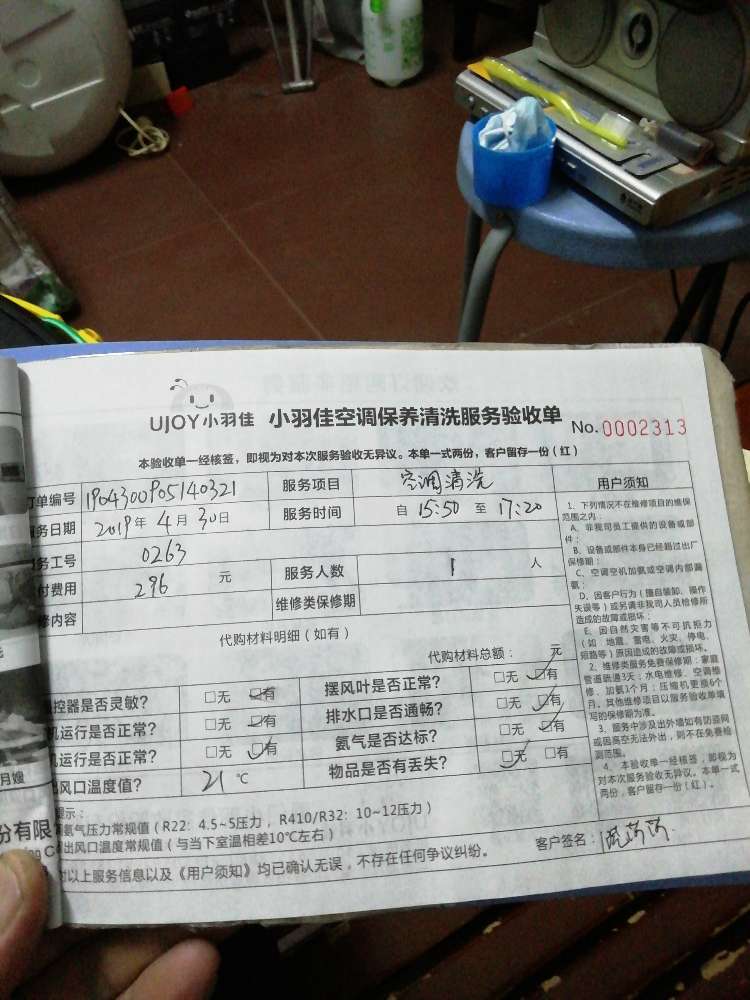 UJOY小羽佳 小羽佳空调保养清洗服务验收单 No.0002313
本验收单一经核签，即视为对本次服务验收无异议。本单一式两份，客户留存一份（红）
订单编号 190430090514032​1 服务项目 空调清洗 用户须知
服务日期 2019年 4月 30日 服务时间 自 15:50 至 17:20
务工号 0263
付费用 296 元 服务人数 1 人
修内容 维修类保修期
代购材料明细（如有）
代购材料总额： 元
控器是否灵敏? □无 □有 摆风叶是否正常? □无 □有
机运行是否正常? □无 □有 排水口是否通畅? □无 □有
机运行是否正常? □无 □有 氨气是否达标? □无 □有
出风口温度值? 21 ℃ 物品是否有丢失? □无 □有
提示：
氨气压力常规值（R22: 4.5~5压力，R410/R32: 10~12压力）
出风口温度常规值（与当下室温相差10℃左右）
对以上服务信息以及《用户须知》均已确认无误，不存在任何争议纠纷。 客户签名：
1、下列情况不在维修项目的维保
范围之内：
A、非我司员工提供的设备或部
件；
B、设备或部件本身已经超过出厂
保修期；
C、空调空机加氨或空调内部漏
氨；
D、因客户行为（擅自装卸、操作
失误等）或另请非我司人员检修所
造成的故障或损坏。
E、因自然灾害等不可抗拒力
（如 地震、雷电、火灾、停电、
短路等）原因造成的故障或损坏。
2、维修类服务免费保修期：家庭
管道疏通3天；水电维修、空调维
修、加氨1个月；压缩机更换6个
月。其他维修项目以服务验收单填
写的保修期为准。
3、服务中涉及出外墙如有防盗网
或因高空无法外出，则不在免费检
测范围。
4、本验收单一经核签，即视为
对本次服务验收无异议。本单一式
两份，客户留存一份（红）。
月嫂
份有限